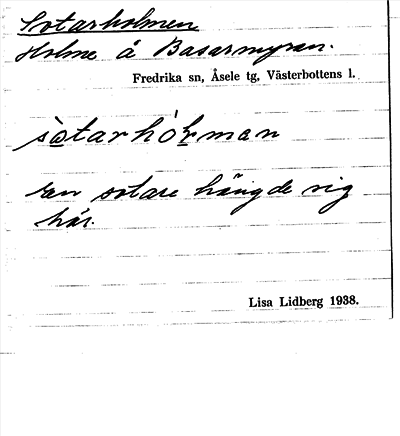 Sotarholmen
Holme å Basarmyran.
Fredrika sn, Åsele tg, Västerbottens l.
sòtarhó̀ḷman
En sotare hängde sig
här.
Lisa Lidberg 1938.